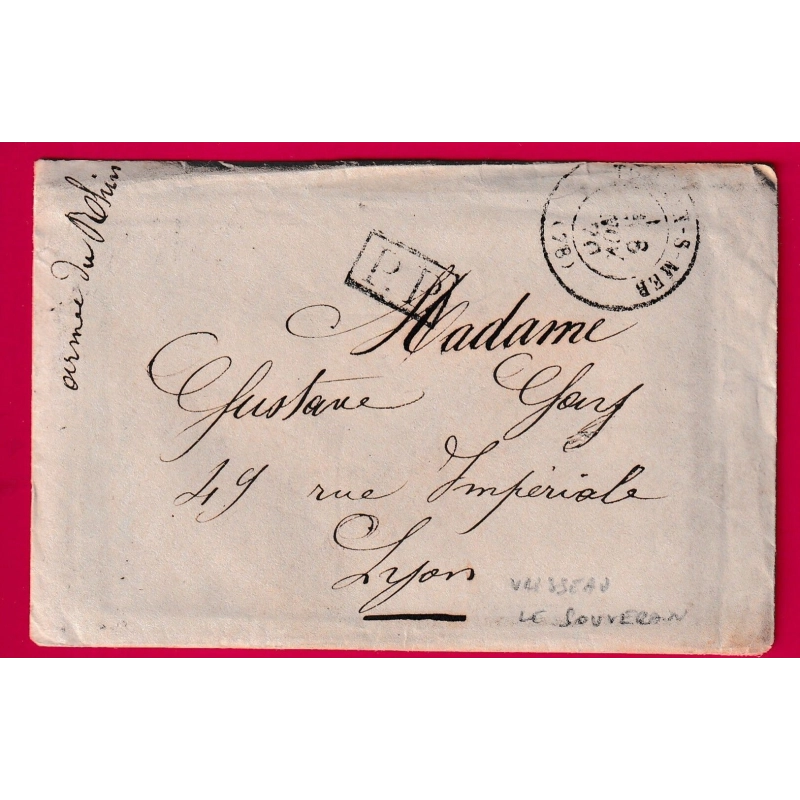 armée du Rhin
P.P.
N-S-MER
(78)
Madame
Gustave Gay
49 rue Impériale
Lyon
VAISSEAU
LE SOUVERAIN